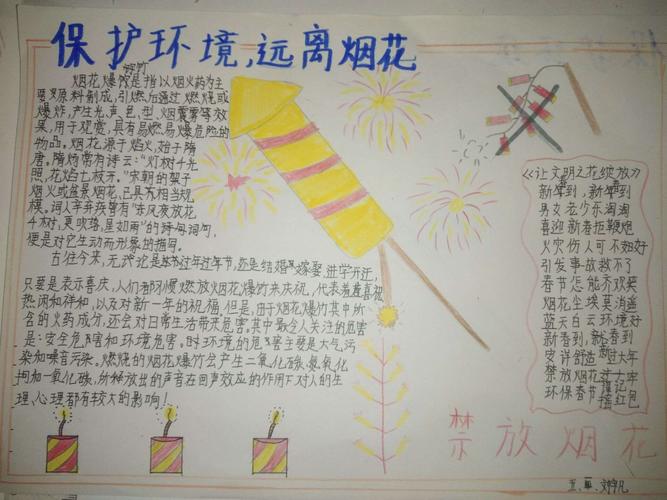 保护环境,远离烟花
爆竹
烟花爆竹是指以烟火药为主
要原料制成,引燃后通过燃烧或
爆炸,产生光、声、色、型、烟雾等效
果,用于观赏,具有易燃易爆危险的
物品。烟花源于焰火,始于隋
唐,隋炀帝有诗云:“灯树千光
照,花焰七枝开。”宋朝的架子
烟火或盆景烟花,已具有相当规
模。词人辛弃疾曾有“东风夜放花
千树,更吹落,星如雨”的绮丽词句,
便是对它生动而形象的描写。
古往今来,无论是春节过年过节,还是结婚嫁娶,进学升迁,
只要是表示喜庆,人们都习惯燃放烟花爆竹来庆祝,代表着喜喜祝
热闹和祥和,以及对新一年的祝福,但是,由于烟花爆竹其中所
含的火药成分,还会对日常生活带来危害,其中最令人关注的危害
是:安全危害和环境危害。对环境的危害主要是大气污
染和噪音污染。燃烧的烟花爆竹会产生二氧化硫、氮氧化
物和一氧化碳,所释放出的声音在回声效应的作用下对人的生
理、心理都有较大的影响!
《让文明之花绽放》
新春到,新春到
男女老少乐淘淘
喜迎新春拒鞭炮
火灾伤人可不好
引发事故救不了
春节怎能齐欢笑
烟花尘埃莫消遥
蓝天白云环境好
新春到,新春到
安详舒适过大年
禁放烟花过十年
环保春节摇红包
禁放烟花